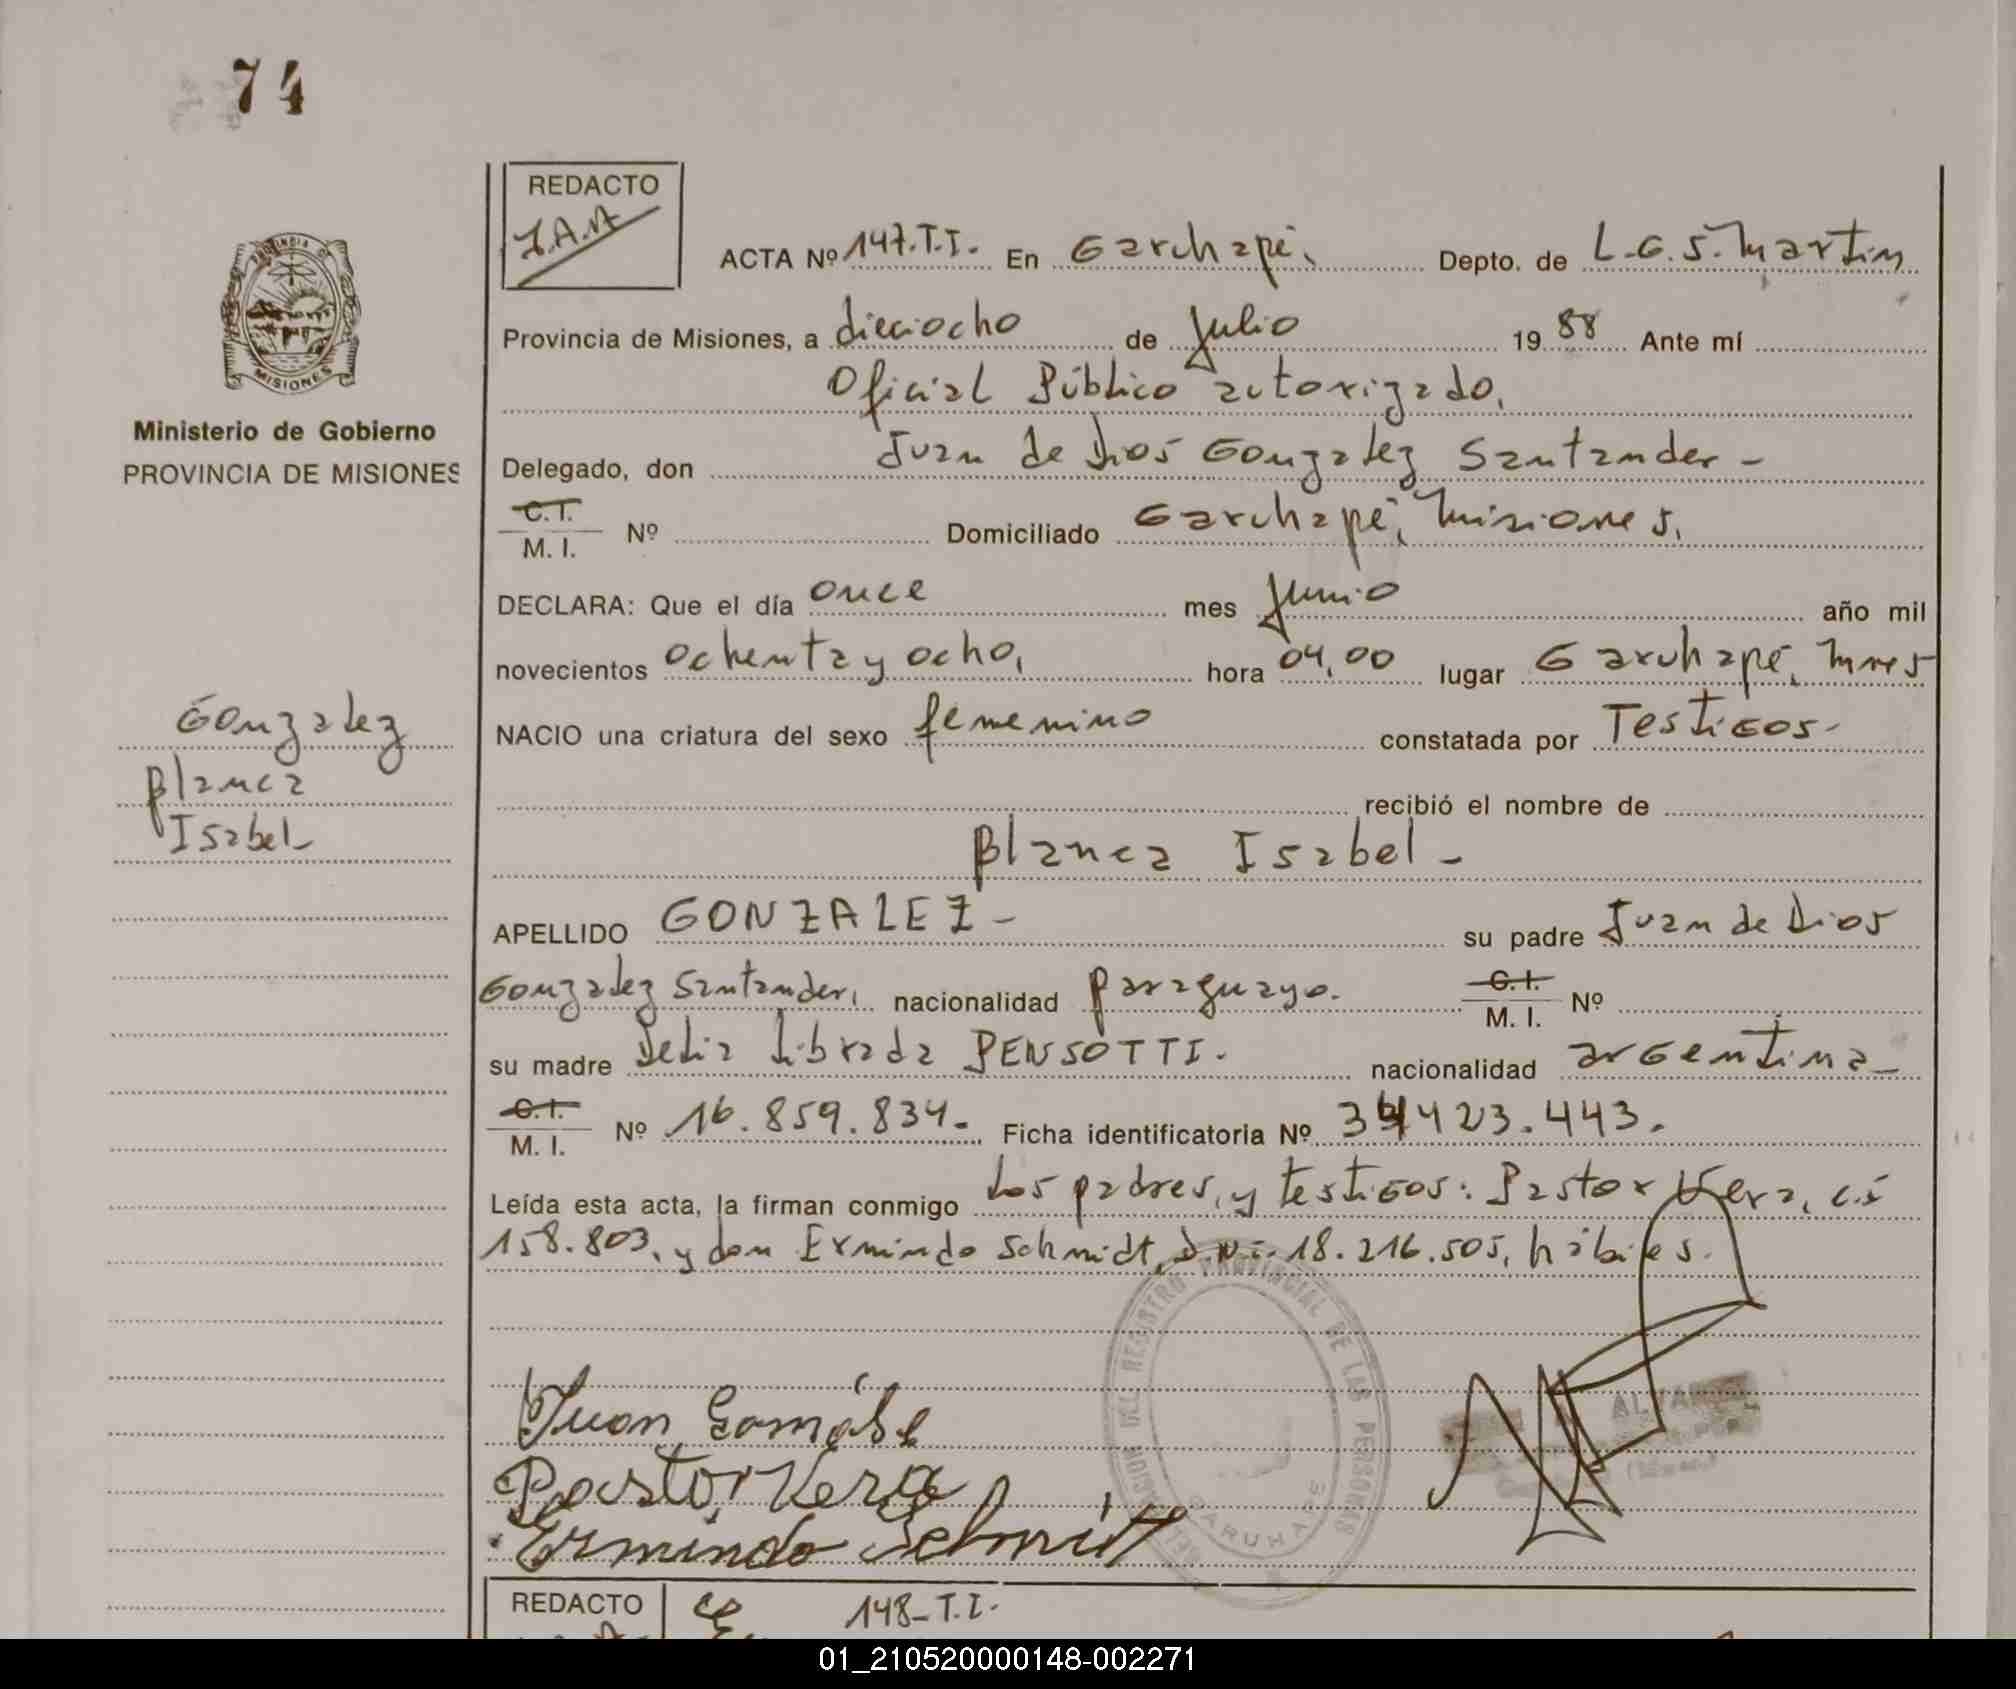 74
REDACTO
J.A.A
ACTA Nº 147.T.I. En Garuhapé, Depto. de L.G.S. Martin
Provincia de Misiones, a dieciocho de Julio 19 88 Ante mí
Oficial Público autorizado,
Ministerio de Gobierno
PROVINCIA DE MISIONES
Delegado, don Juan de Dios Gonzalez Santander -
C.I. M. I. Nº Domiciliado Garuhapé, Misiones,
DECLARA: Que el día once mes Junio año mil
novecientos ochenta y ocho, hora 04,00 lugar Garuhapé, Mnes
NACIO una criatura del sexo femenino constatada por Testigos-
Gonzalez
Blanca
Isabel-
recibió el nombre de
Blanca Isabel -
APELLIDO GONZALEZ - su padre Juan de Dios
Gonzalez Santander, nacionalidad paraguayo. C.I. M. I. Nº
su madre Delia Librada PENSOTTI. nacionalidad argentina
C.I. M. I. Nº 16.859.834. Ficha identificatoria Nº 423.443.
Leída esta acta, la firman conmigo Los padres, y testigos: Pastor Vera, c.i
158.803, y don Ermindo Schmidt, d.n.i. 18.216.505, hábiles.
DEL REGISTRO PROVINCIAL DE LAS PERSONAS
GARUHAPE
Juan
Pastor Vera
Ermindo Schmitt
REDACTO 148-T.I.
01_210520000148-002271